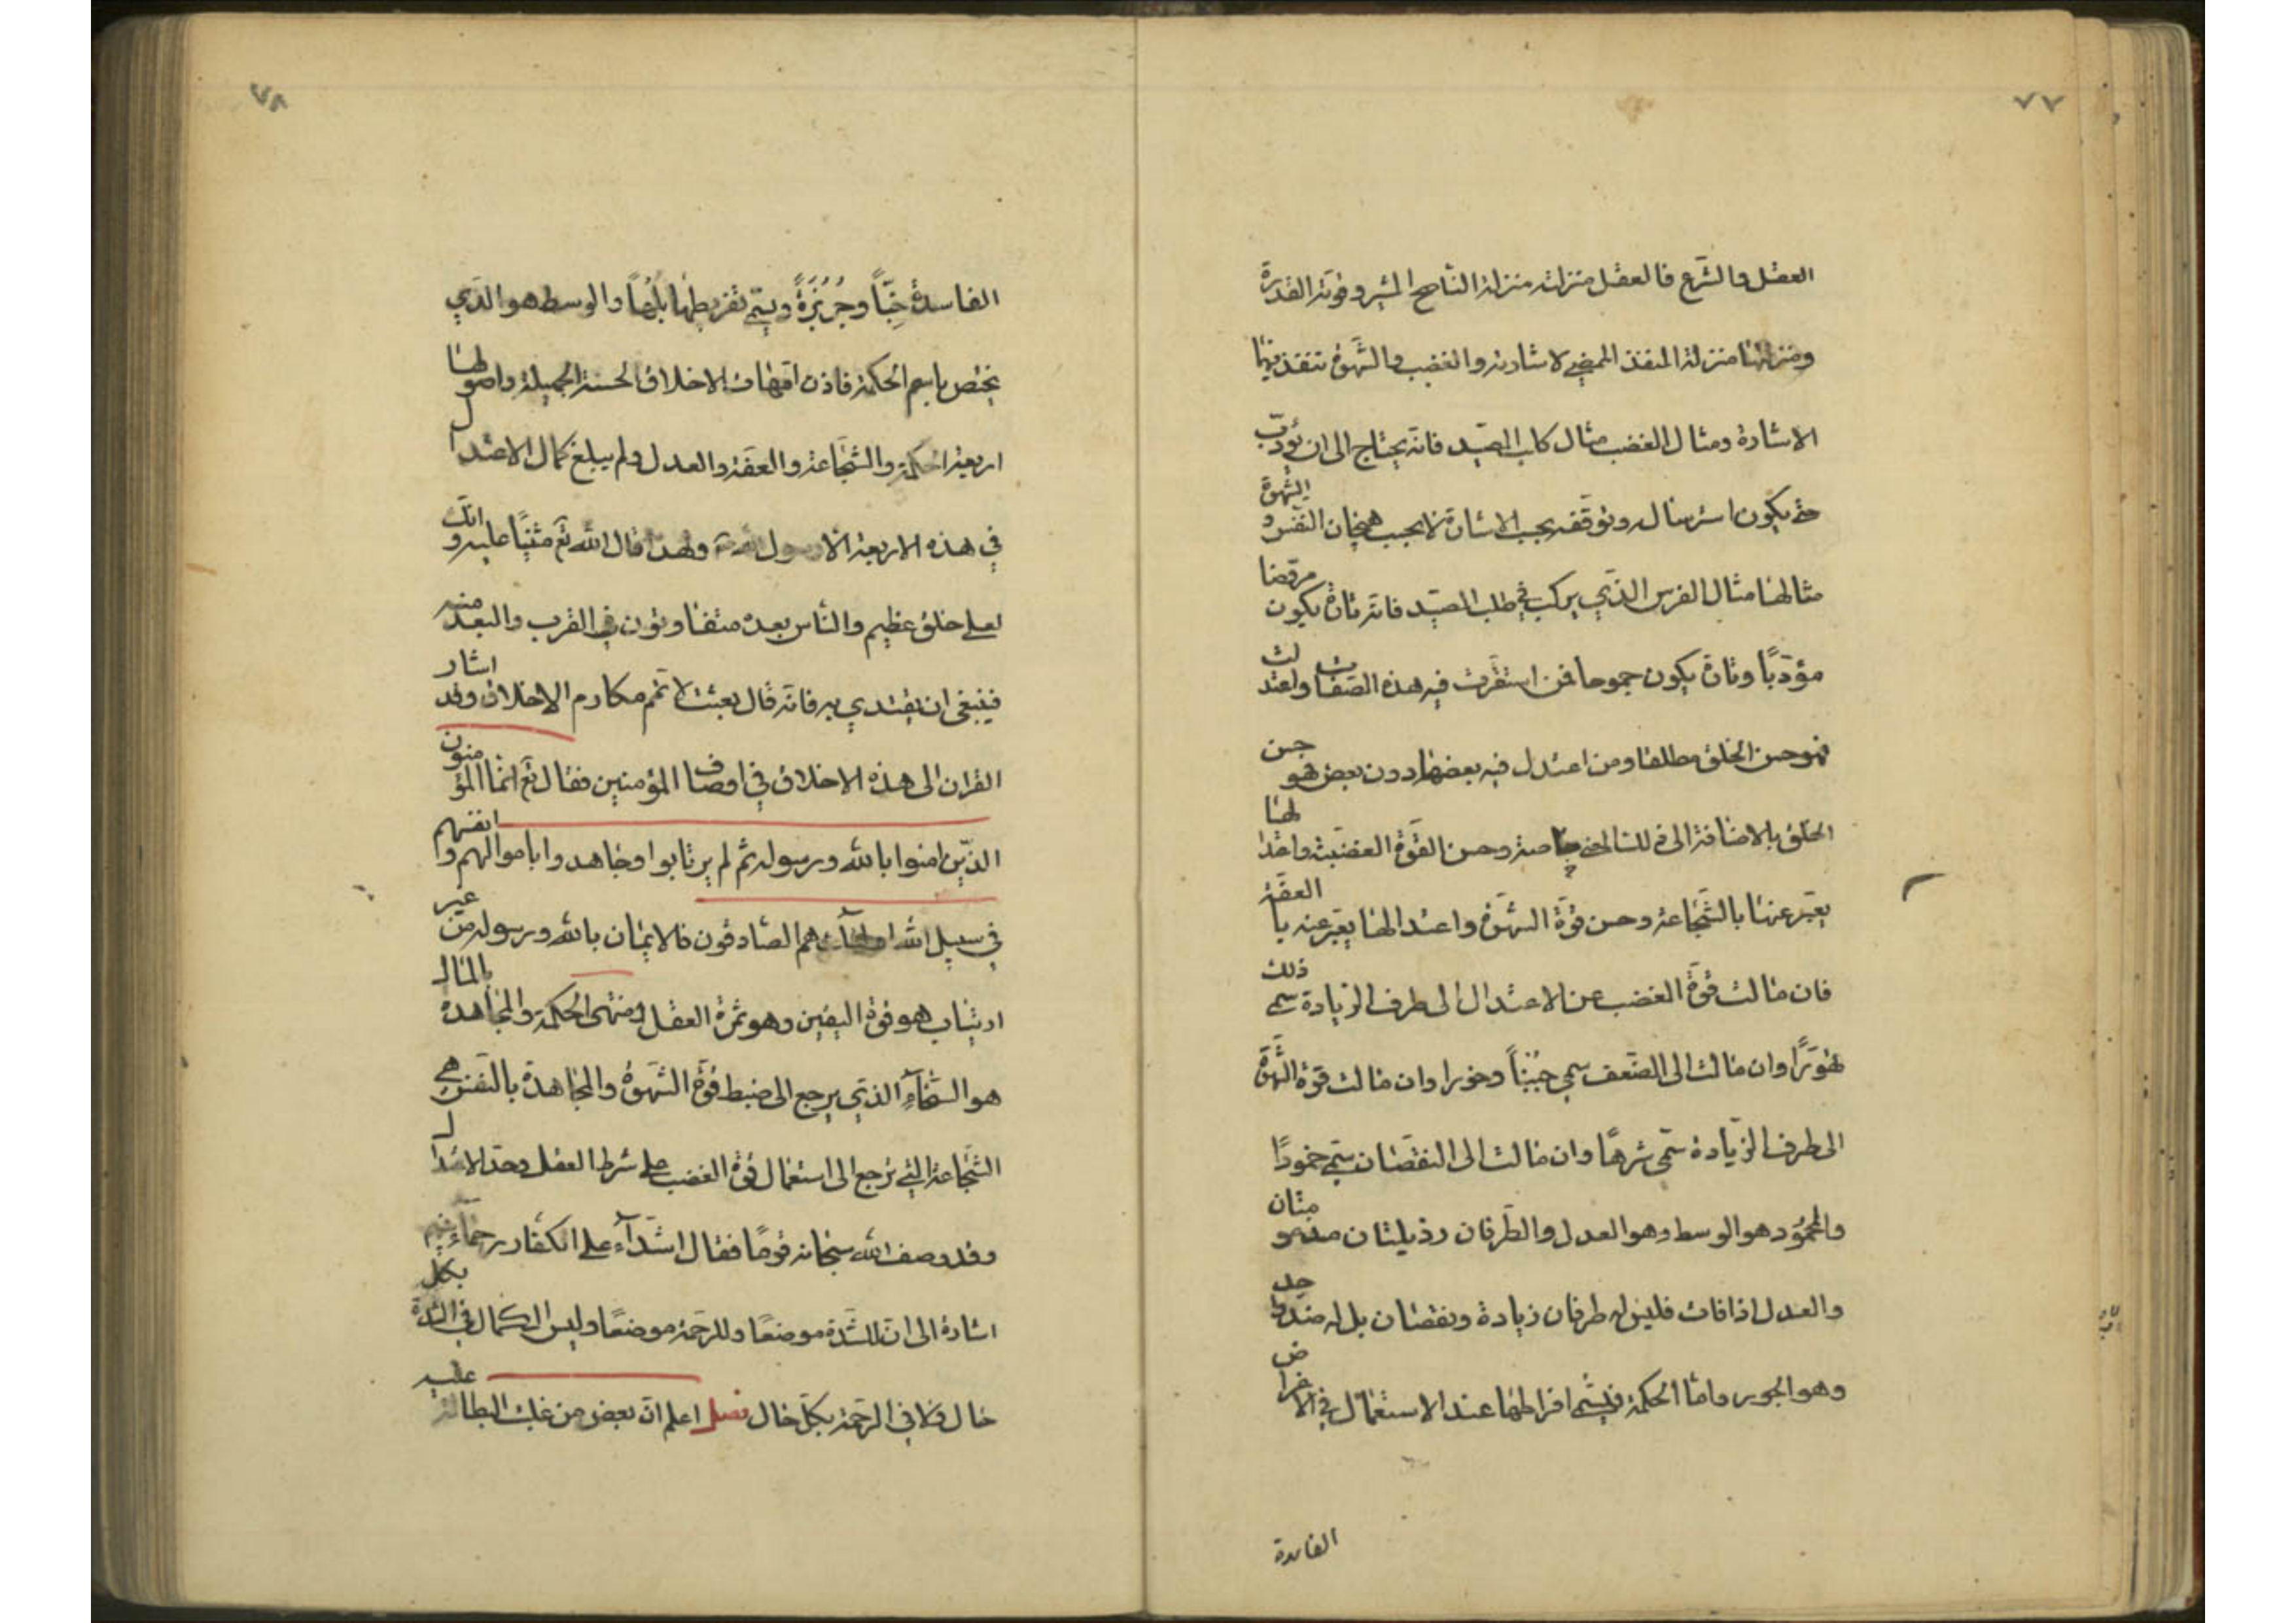 ٧٧
العقل والشرع فالعقل منزلته منزلة الناصح المشير وقوته القدرة
ومنزلتها منزلة المنفذ الممضي لاشارته والغضب والشهوة تنفذ فيها
الاشارة ومثال الغضب مثال كلب الصيد فانه يحتاج الى ان يؤدب
حتى يكون استرساله وتوقفه بحسب الاشارة لا بحسب هيجان النفس و الشهوة
مثالها مثال الفرس الذي يركب في طلب الصيد فانه تارة يكون مروضا
مؤدبًا وتارة يكون جموحا فمن استقرت فيه هذه الصفات واعتدلت
فهو حسن الخلق مطلقا ومن اعتدل فيه بعضها دون بعض فهو حسن
الخلق بالاضافة الى ذلك المعنى خاصة وحسن القوة الغضبية واعتدالها
يعبّر عنها بالشجاعة وحسن قوّة الشهوة واعتدالها يعبّر عنه بالعفّة
فان مالت قوّة الغضب عن الاعتدال الى طرف الزيادة سمي ذلك
تهوّرًا وان مالت الى الضعف سمي جبنًا وخورا وان مالت قوة الشهوة
الى طرف الزيادة سمّي شرهًا وان مالت الى النقصان سمّي خمودًا
والمحمود هو الوسط وهو العدل والطرفان رذيلتان مذمومتان
والعدل اذا فات فليس له طرفان زيادة ونقصان بل له ضد واحد
وهو الجور واما الحكمة فيسمّى افراطها عند الاستعمال في الاغراض
الفاسدة
٧٨
الفاسدة خِبّاً وجُربُزَةً ويسمّى تفريطها بلهاً والوسط هو الذي
يختص باسم الحكمة فاذن امّهات الاخلاق الحسنة الجميلة واصولها
اربعة الحكمة والشجاعة والعفّة والعدل ولم يبلغ كمال الاعتدال
في هذه الاربعة الا رسول الله ص ولهذا قال الله تع مثنيًا عليه وانك
لعلى خلق عظيم والناس بعده متفاوتون في القرب والبعد منه
فينبغي ان يقتدي به فانه قال بعثت لاتمّم مكارم الاخلاق وقد اشار
القران الى هذه الاخلاق في اوصاف المؤمنين فقال تع انما المؤمنون
الذين امنوا بالله ورسوله ثم لم يرتابوا وجاهدوا باموالهم وانفسهم
في سبيل الله اولئك هم الصادقون فالايمان بالله ورسوله من غير
ارتياب هو قوة اليقين وهو ثمرة العقل ومنتهى الحكمة والمجاهدة بالمال
هو السخاء الذي يرجع الى ضبط قوة الشهوة والمجاهدة بالنفس هي
الشجاعة التي ترجع الى استعمال قوة الغضب على شرط العقل وحد الاعتدال
وقد وصف الله سبحانه قومًا فقال اشدّاء على الكفار رحماء بينهم
اشارة الى ان للشدة موضعًا وللرحمة موضعًا وليس الكمال في الشدة بكل
حال ولا في الرحمة بكلّ حال فصل اعلم ان بعض من غلبت البطالة عليه